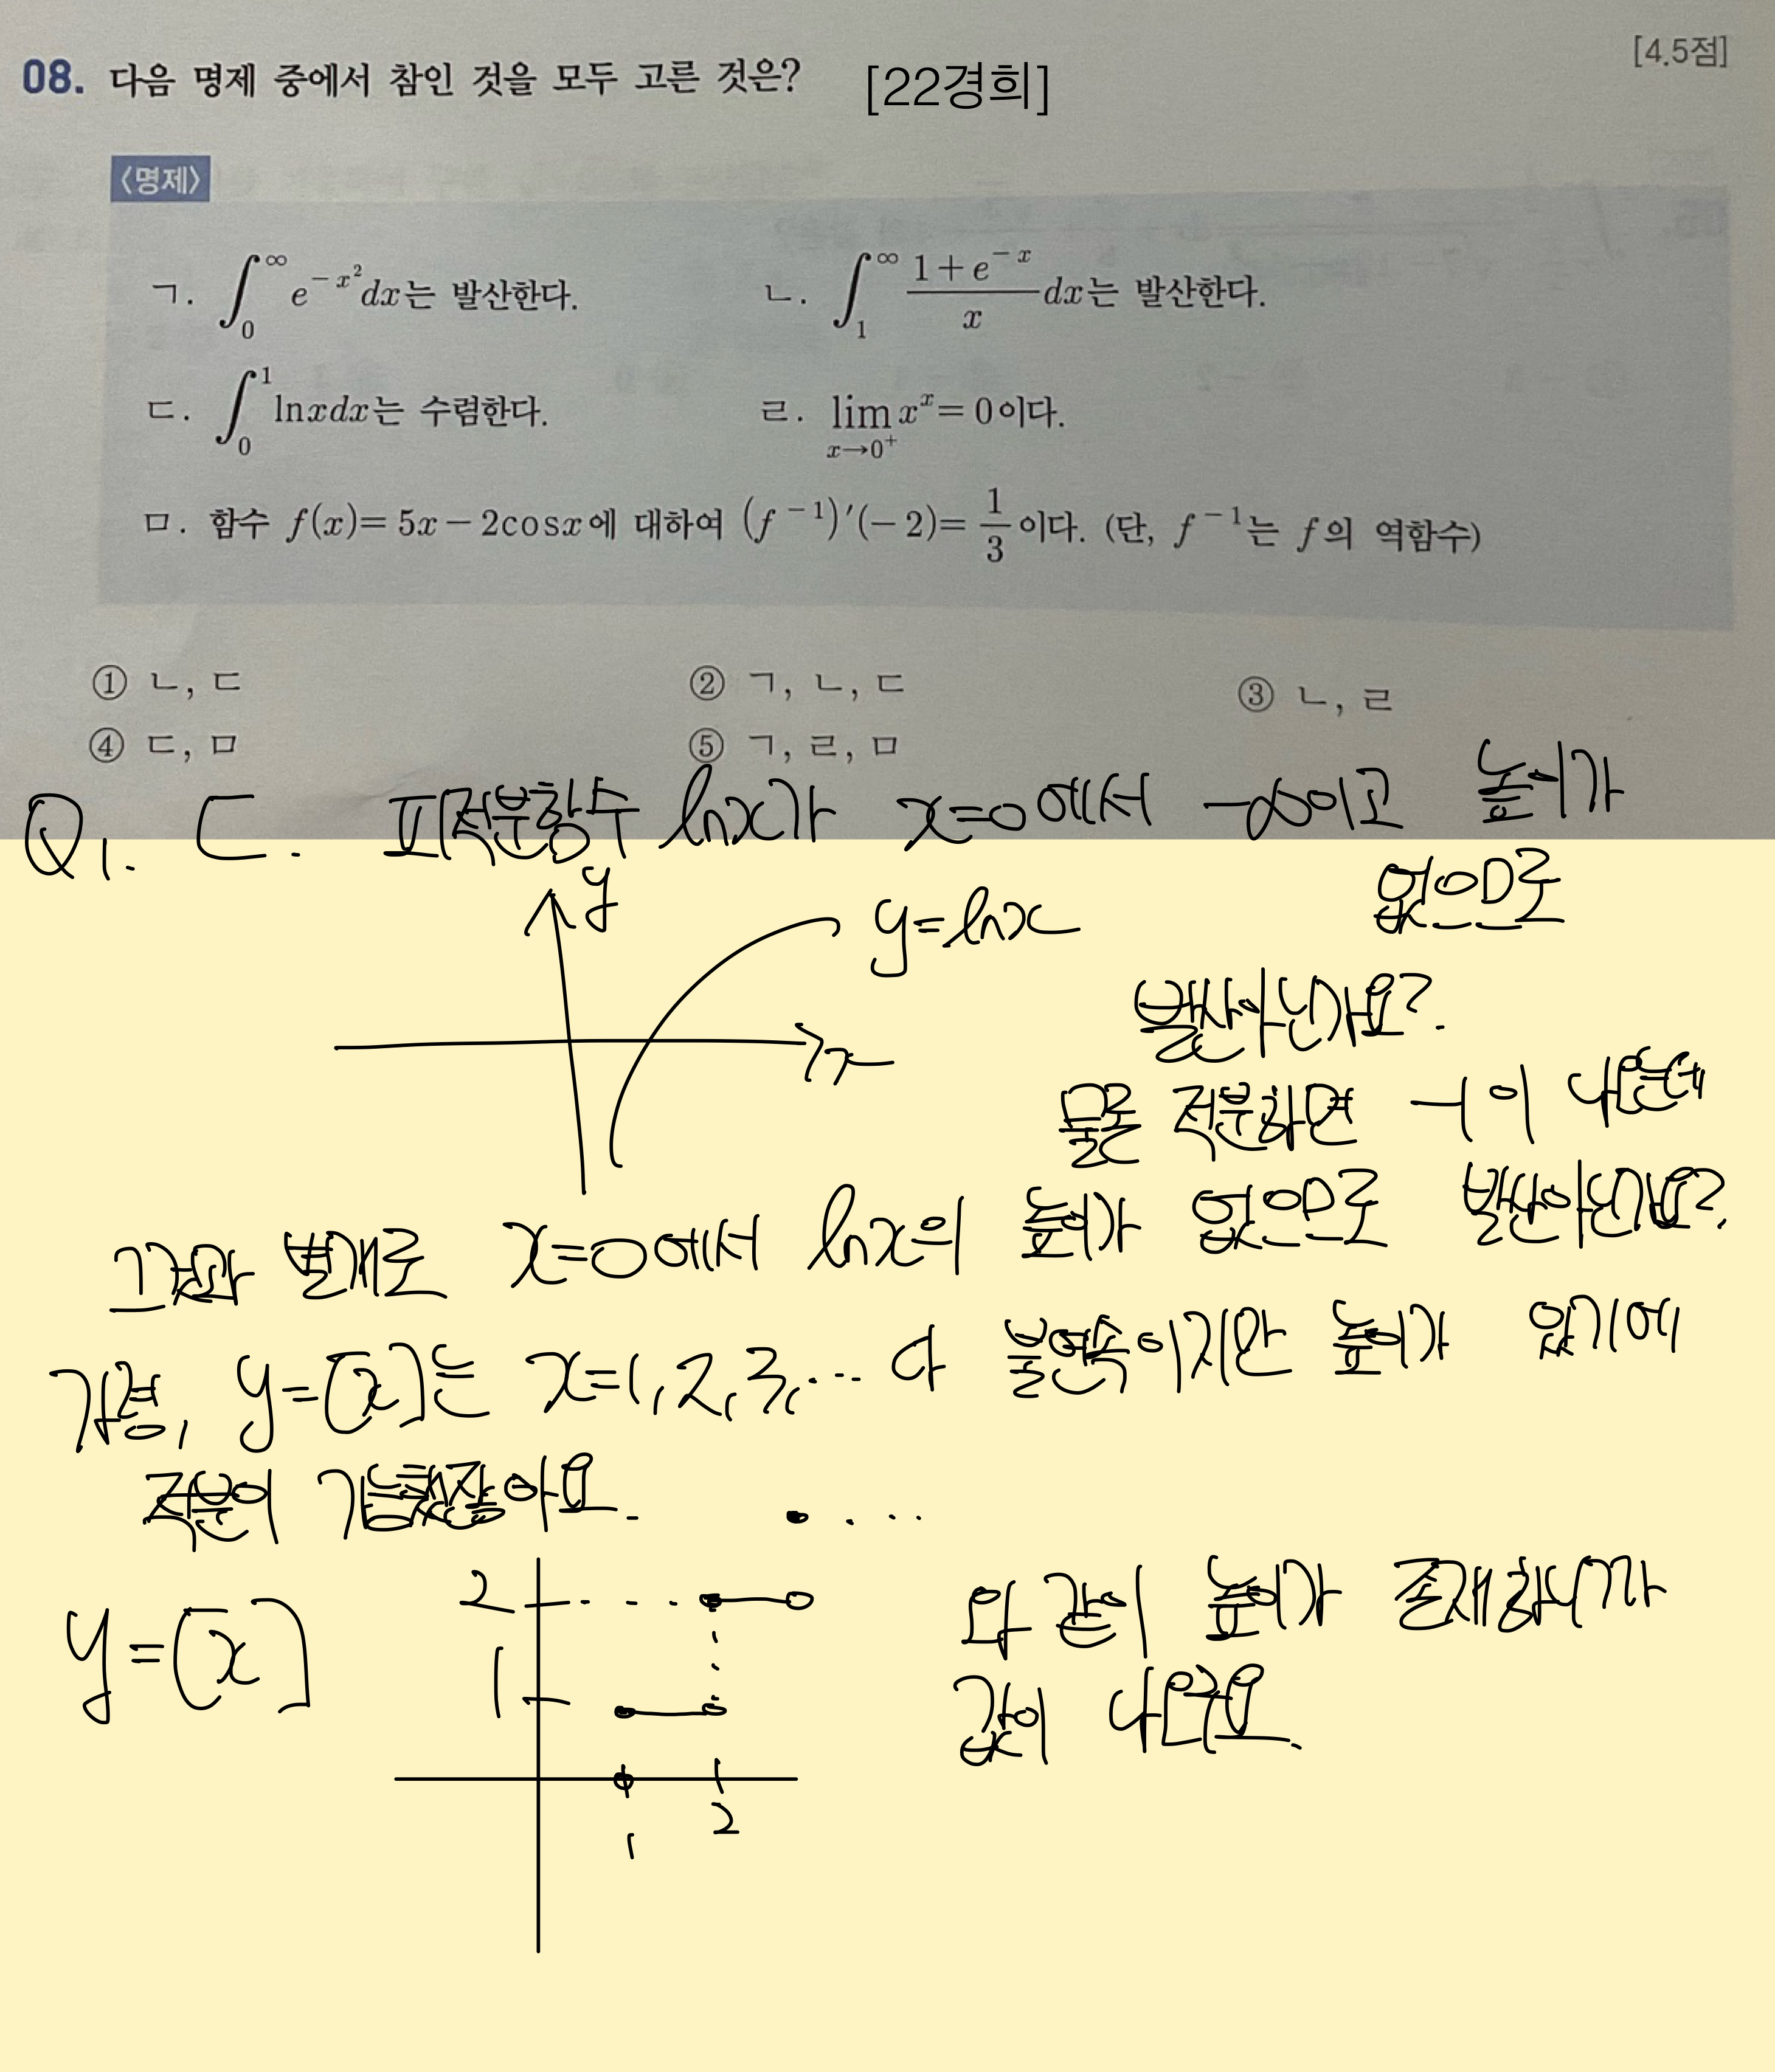 [4.5점]
08. 다음 명제 중에서 참인 것을 모두 고른 것은? [22경희]
〈명제〉
ㄱ. ∫₀^∞ e^(-x²) dx는 발산한다. ㄴ. ∫₁^∞ (1+e^(-x))/x dx는 발산한다.
ㄷ. ∫₀^1 lnxdx는 수렴한다. ㄹ. lim_(x→0⁺) x^x = 0이다.
ㅁ. 함수 f(x)= 5x-2cosx에 대하여 (f⁻¹)′(-2)= 1/3이다. (단, f⁻¹는 f의 역함수)
① ㄴ, ㄷ ② ㄱ, ㄴ, ㄷ ③ ㄴ, ㄹ
④ ㄷ, ㅁ ⑤ ㄱ, ㄹ, ㅁ
Q1. ㄷ. 피적분함수 lnx가 x=0에서 -∞이고 높이가
없으므로
y
y=lnx
발산아닌가요?
x
물론 적분하면 -1이 나오는데
그것과 별개로 x=0에서 lnx의 높이가 없으므로 발산아닌가요?
가령, y=[x]는 x=1, 2, 3, … 다 불연속이지만 높이가 있기에
적분이 가능했잖아요.
2
와 같이 높이가 존재하니까
y=[x]
1
값이 나와요.
2
1